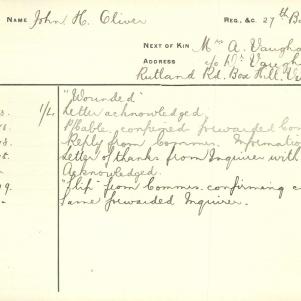 NAME John H. Oliver REG. &C. 27th Ba
NEXT OF KIN Mrs A. Vaugha
ADDRESS c/o Dr. Vaugh
Rutland Rd. Box Hill, Vi
"Wounded"
1/4 Letter acknowledged.
Cable, confirmed forwarded Com
Reply from Commes. Information
Letter of thanks from Inquirer with
Acknowledged.
9. "Slip" from Commes. confirming c
Same forwarded Inquirer.